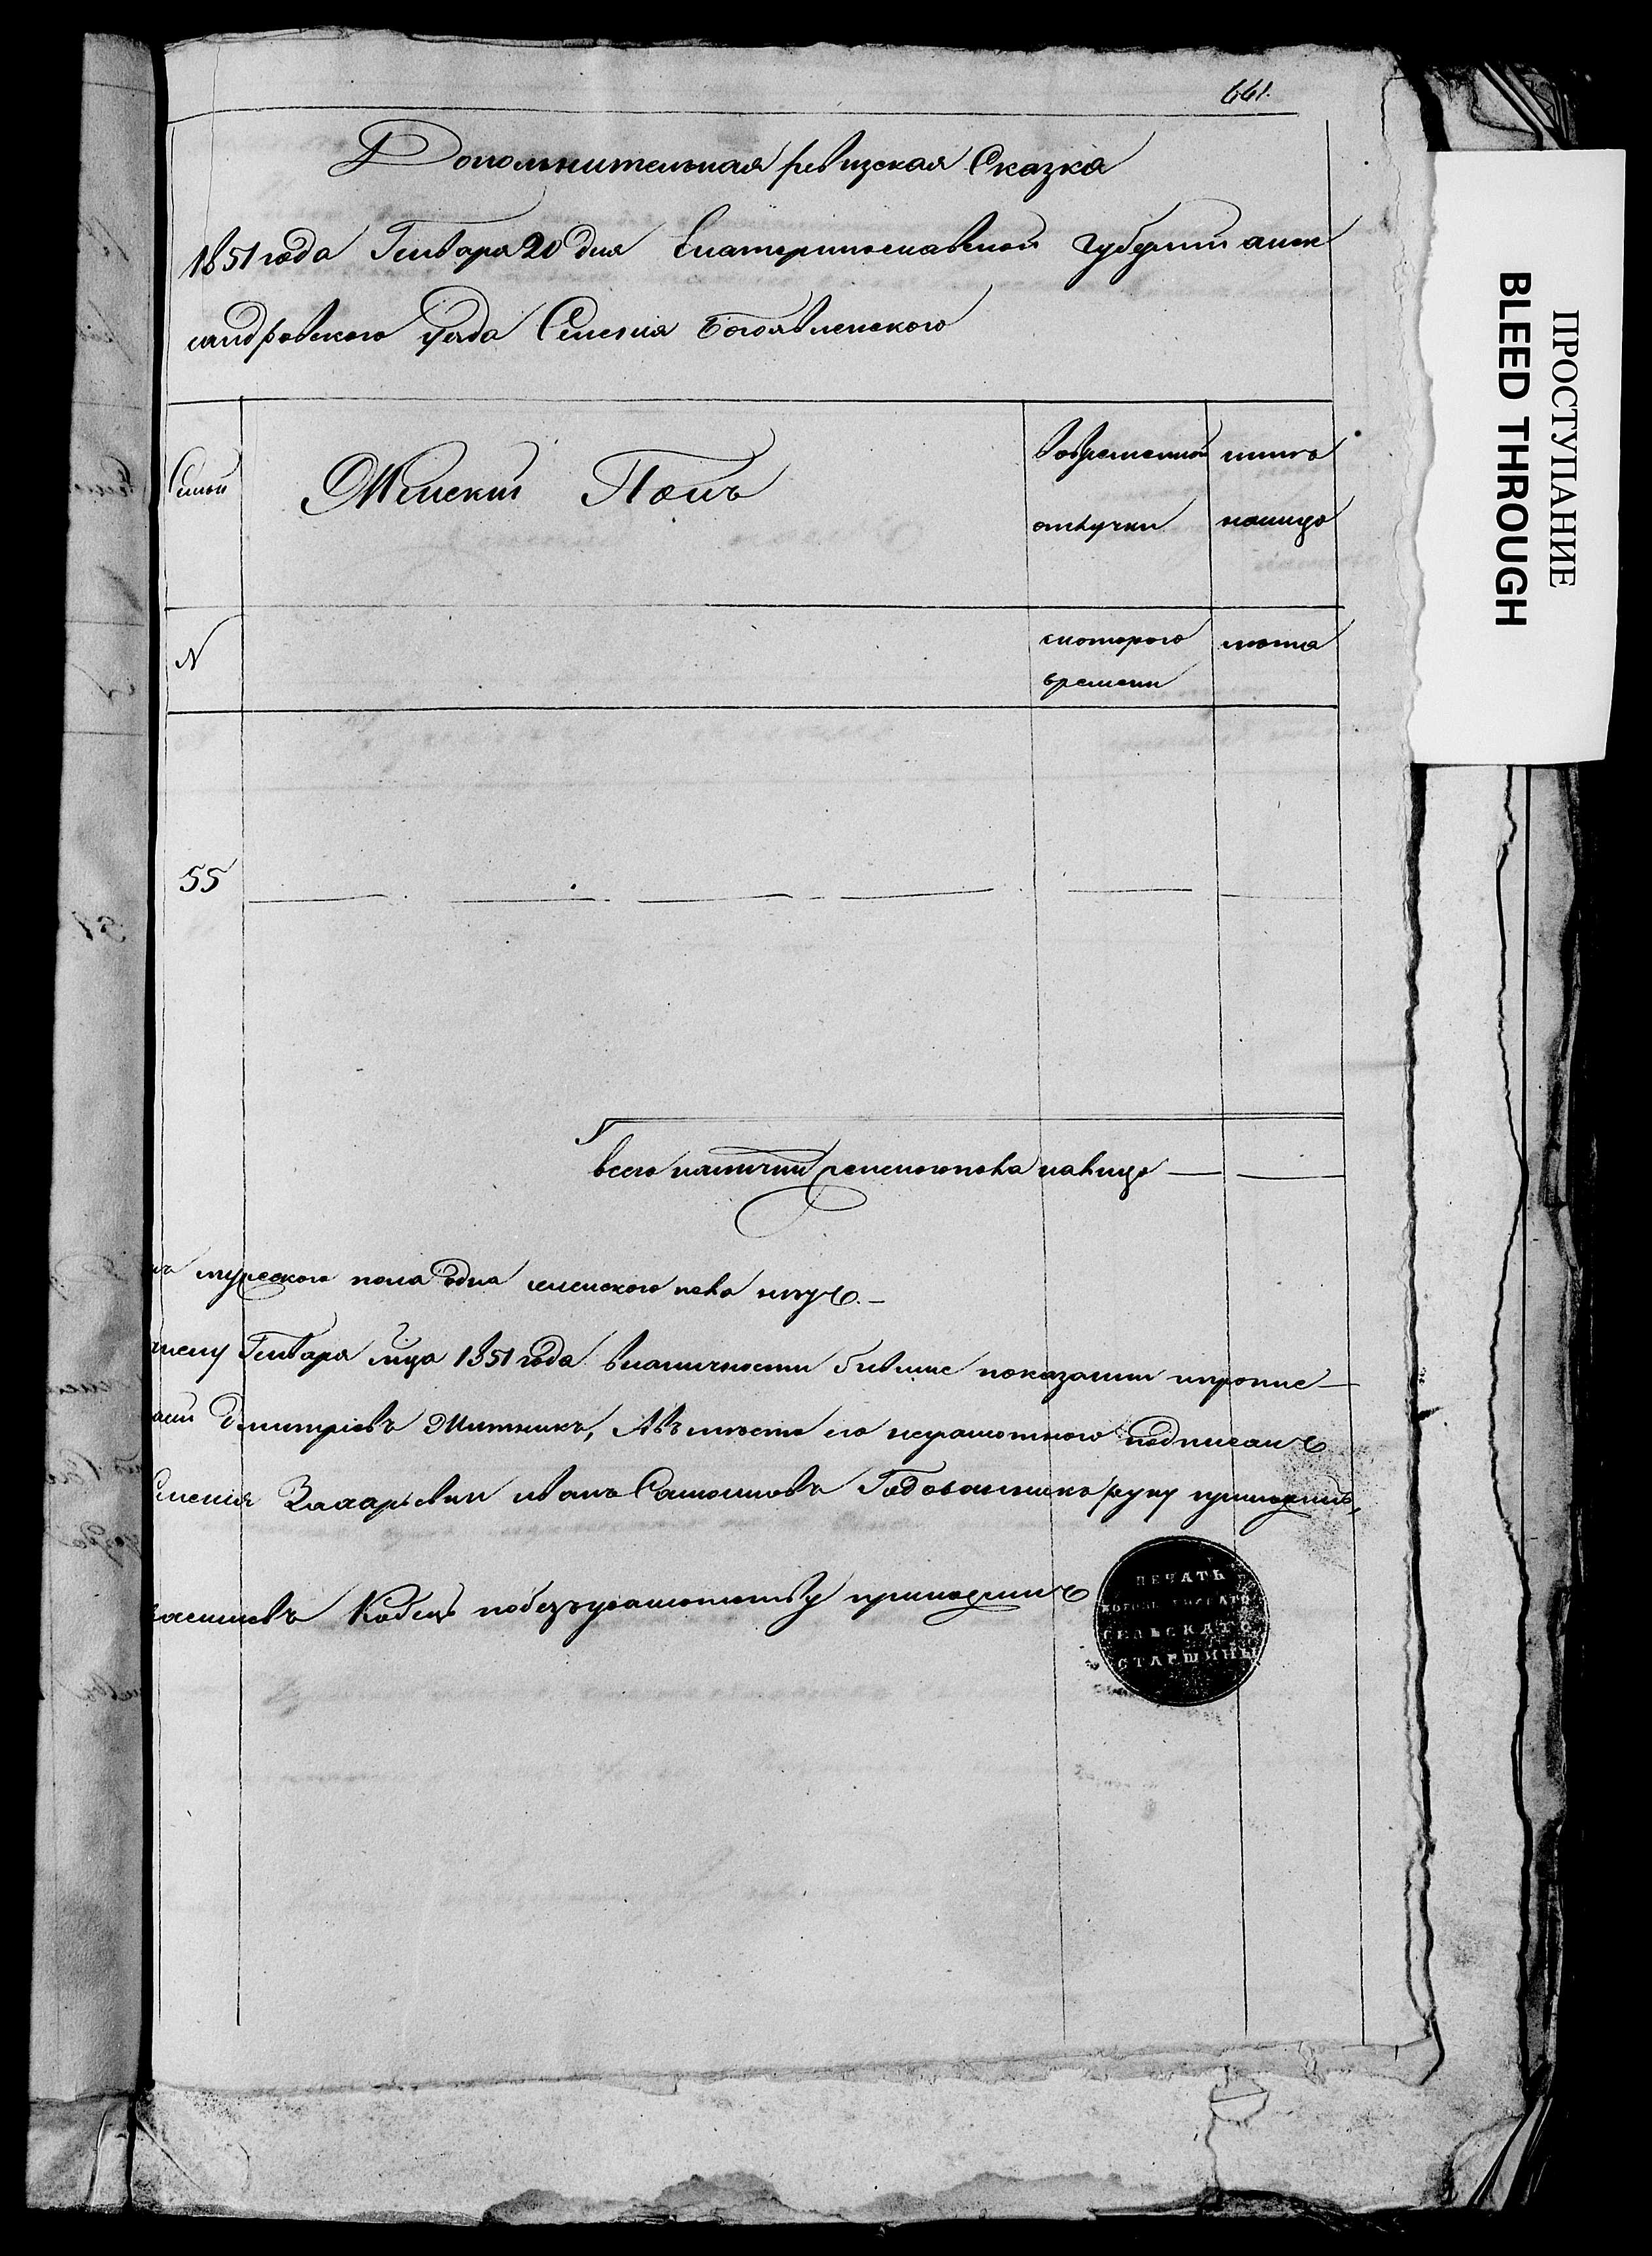 661.
Дополнительная ревизская Сказка
1851 года Генваря 20 дня Екатеринославской губернии алек
сандровского уезда Селения Богоявленского
Семьи
Женский Полъ
Вовременной
отлучки
ныне
налицо
N
скоторого
времени
лета
55
всего наличии женского пола налицо
мужеского пола одна женского пола нету.
Генваря м҃ца 1851 года вналичности бывшие показании прописе
Дмитріевъ Шитникъ, Авъместо его неграмотного подписалъ
Селенія Захарьевки иванъ Самойловъ Годованникъ руку приложилъ,
Кобецъ побезъграмотству приложилъ
ПЕЧАТЬ
СЕЛЬСКАГО
СТАРШИНЫ
ПРОСТУПАНИЕ
BLEED THROUGH